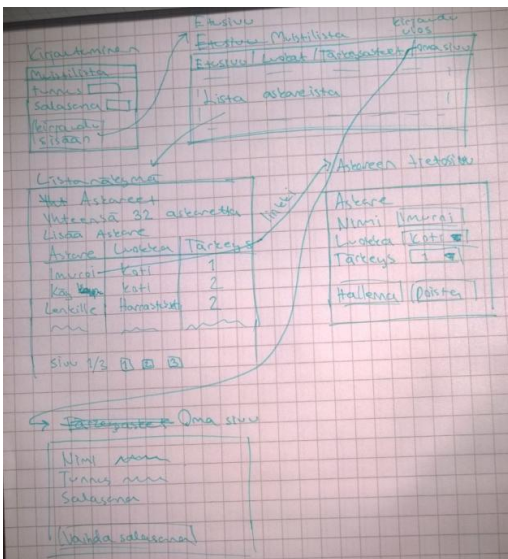 Kirjautuminen
Muistilista
tunnus
salasana
kirjaudu
sisään
Etusivu
Etusivu Muistilista
kirjaudu
ulos
Etusivu / Luokat / Tärkeysasteet / Oma sivu
Lista askareista
Listanäkymä
Askareet
Yhteensä 32 askaretta
Lisää Askare
Askare Luokka Tärkeys
Imuroi koti 1
Käy koti 2
Lenkille Harrastukset 2
sivu 1/3 1 2 3
linkki
Askareen tietosivu
Askare
Nimi Imuroi
Luokka Koti
Tärkeys 1
Tallenna Poista
Oma sivu
Nimi
Tunnus
Salasana
Vaihda salasana